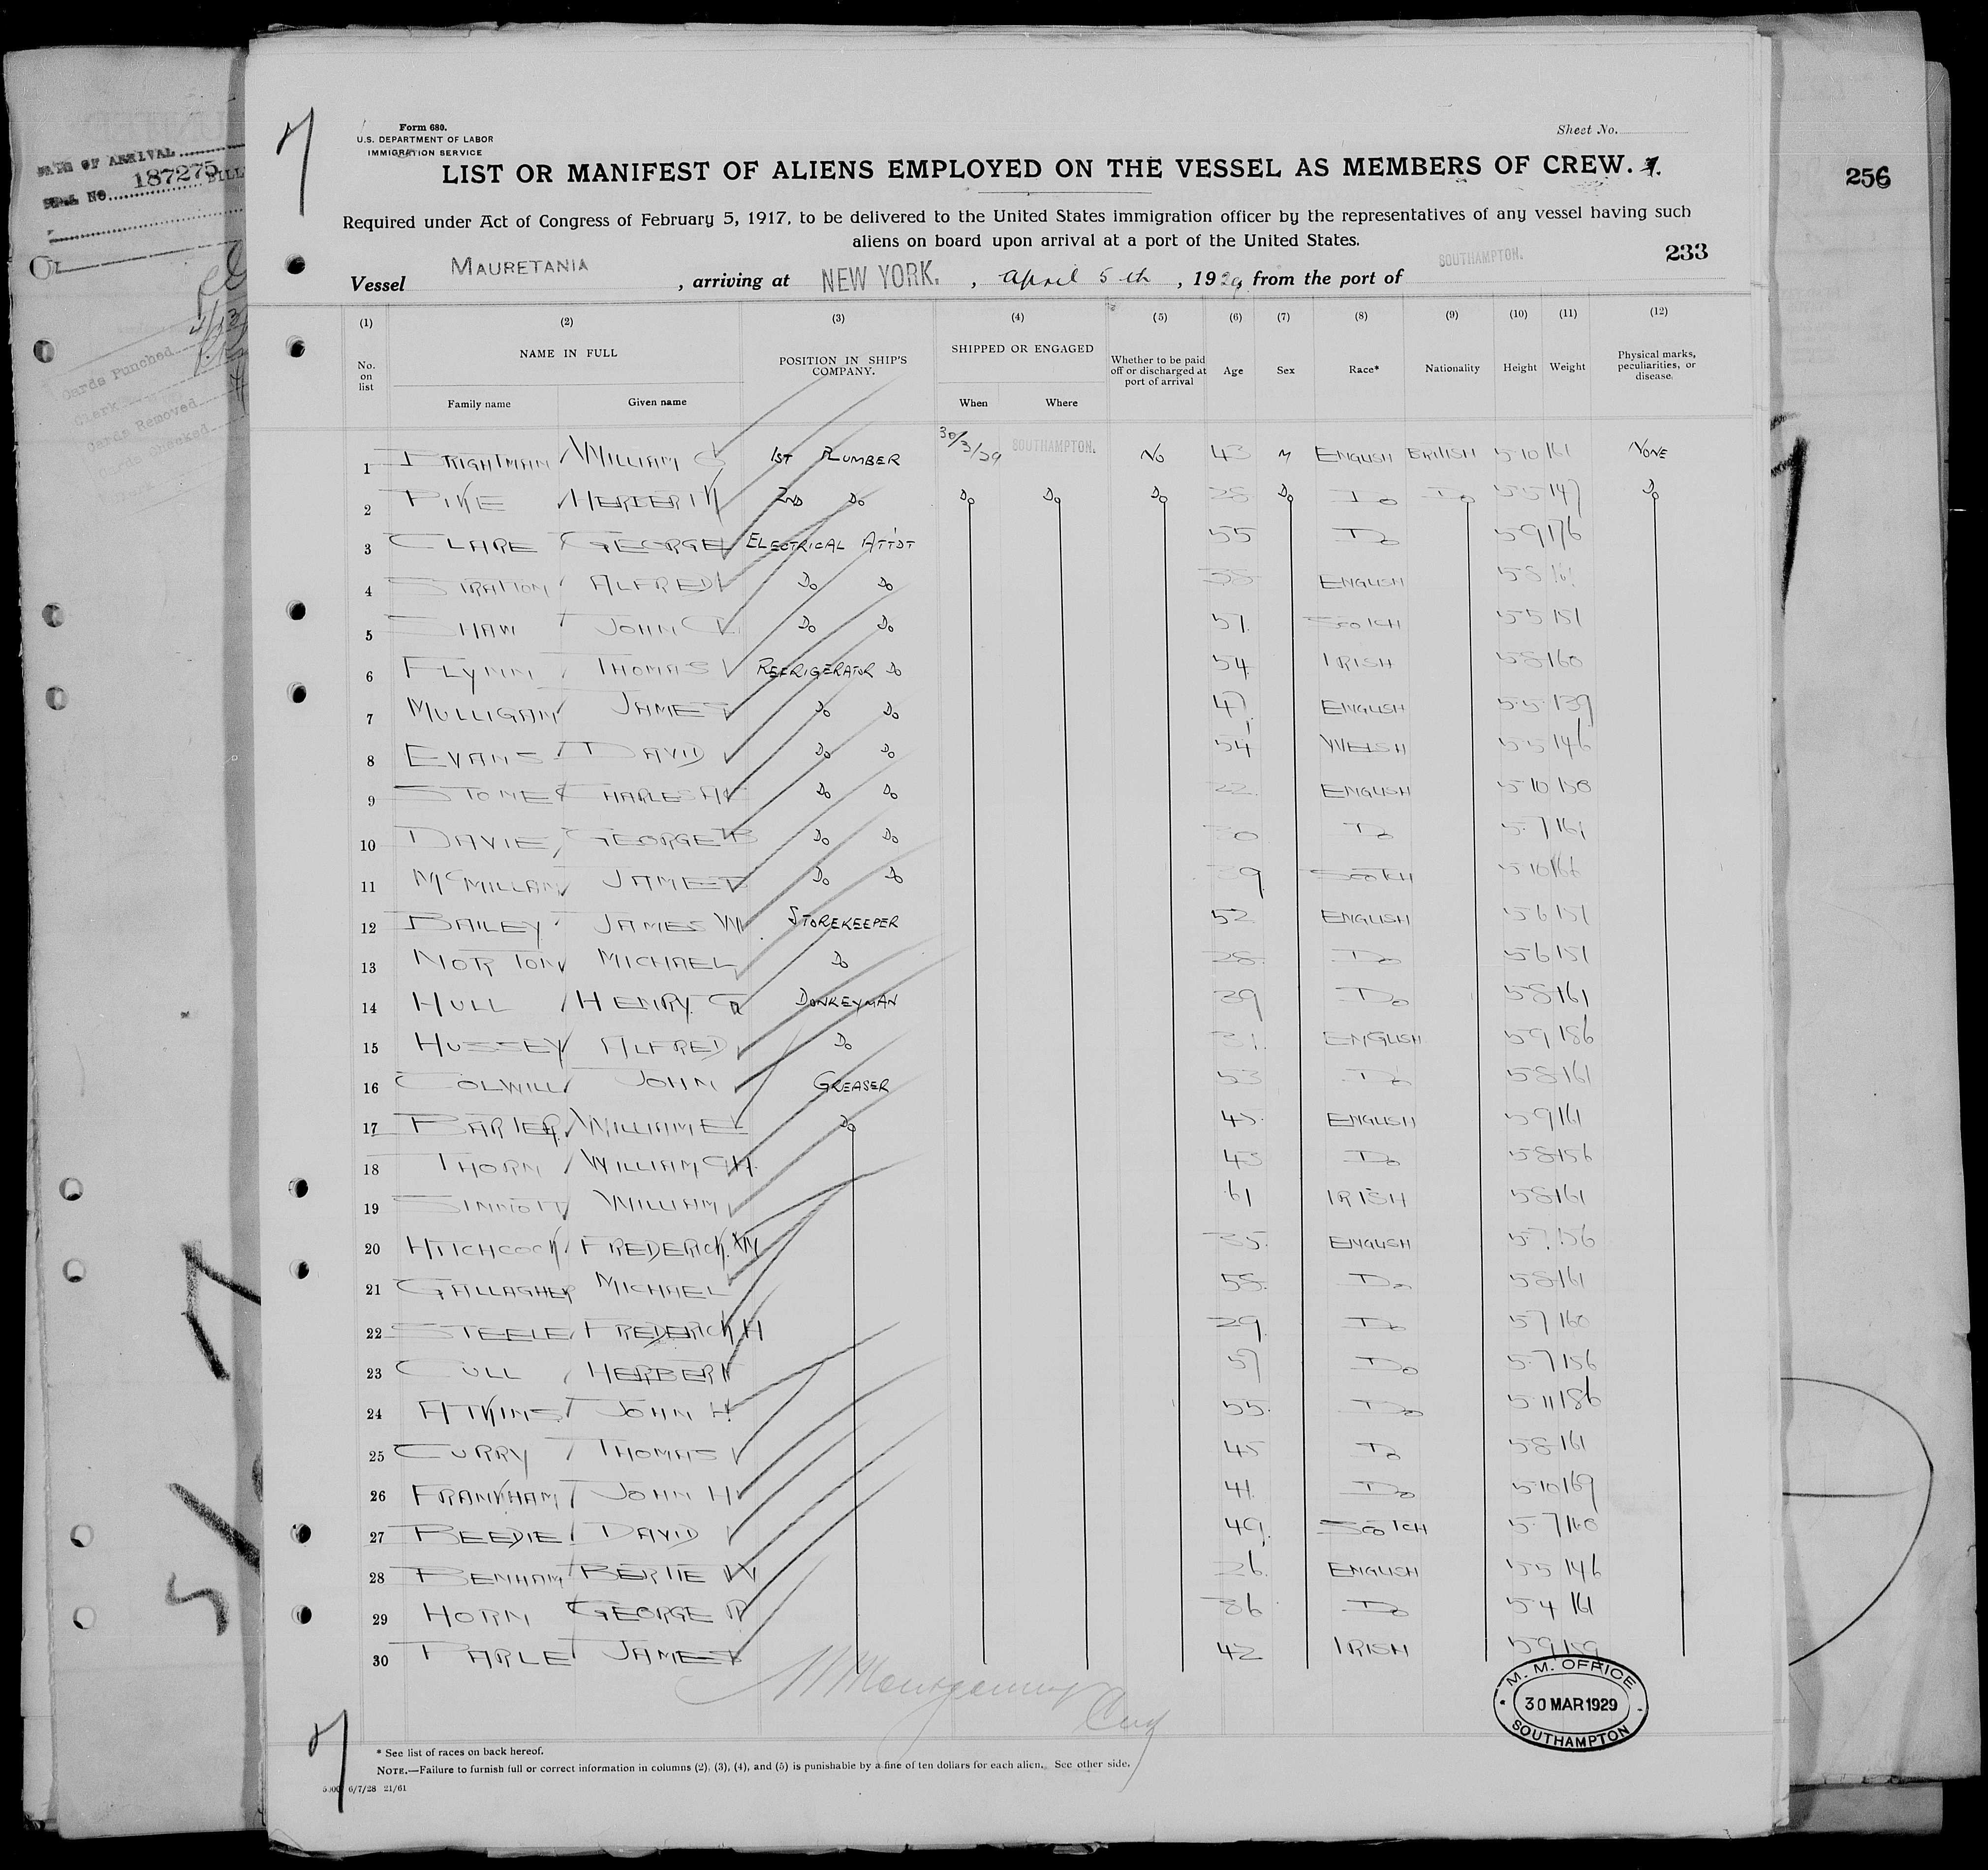 DATE OF ARRIVAL
187275
Cards Punched
Clerk
Cards Removed
Form 680.
U.S. DEPARTMENT OF LABOR
IMMIGRATION SERVICE
Sheet No.
LIST OR MANIFEST OF ALIENS EMPLOYED ON THE VESSEL AS MEMBERS OF CREW.
256
Required under Act of Congress of February 5, 1917, to be delivered to the United States immigration officer by the representatives of any vessel having such
aliens on board upon arrival at a port of the United States.
233
Vessel MAURETANIA, arriving at NEW YORK., April 5th, 1929, from the port of SOUTHAMPTON.
(1) (2) (3) (4) (5) (6) (7) (8) (9) (10) (11) (12)
No. on list NAME IN FULL POSITION IN SHIP'S COMPANY. SHIPPED OR ENGAGED Whether to be paid off or discharged at port of arrival Age Sex Race* Nationality Height Weight Physical marks, peculiarities, or disease.
Family name Given name When Where
1 BRIGHTMAN WILLIAM G 1ST PLUMBER 30/3/29 SOUTHAMPTON. NO 43 M ENGLISH BRITISH 5-10 161 NONE
2 PIKE HERBERT 2ND DO DO DO DO 28 DO DO DO 5-5 147 DO
3 CLARE GEORGE ELECTRICAL ATT'DT 55 DO 5-9 176
4 STRATTON ALFRED DO DO ENGLISH 5-8 161
5 SHAW JOHN DO DO 57 SCOTCH 5-5 151
6 FLYNN THOMAS REFRIGERATOR DO 54 IRISH 5-8 160
7 MULLIGAN JAMES DO DO 47 ENGLISH 5-5 139
8 EVANS DAVID DO DO 54 WELSH 5-5 146
9 STONE CHARLES H DO DO 22 ENGLISH 5-10 150
10 DAVIE GEORGE B DO DO 30 DO 5-7 161
11 MCMILLAN JAMES DO DO 39 SCOTCH 5-10 166
12 BAILEY JAMES W STOREKEEPER 52 ENGLISH 5-6 151
13 NORTON MICHAEL DO 28 DO 5-6 151
14 HULL HENRY G DONKEYMAN 39 DO 5-8 161
15 HUSSEY ALFRED DO 31 ENGLISH 5-9 186
16 COLWILL JOHN GREASER 53 DO 5-8 161
17 BARTER WILLIAM E DO 45 ENGLISH 5-9 161
18 THORN WILLIAM G H. 43 DO 5-8 156
19 SINNOTT WILLIAM 61 IRISH 5-8 161
20 HITCHCOCK FREDERICK W 35 ENGLISH 5-7 156
21 GALLAGHER MICHAEL 55 DO 5-8 161
22 STEELE FREDERICK H 29 DO 5-7 160
23 CULL HERBERT 57 DO 5-7 156
24 ATKINS JOHN H. 55 DO 5-11 186
25 CURRY THOMAS 45 DO 5-8 161
26 FRANKHAM JOHN H 41 DO 5-10 169
27 BEEDIE DAVID 49 SCOTCH 5-7 160
28 BENHAM BERTIE W 26 ENGLISH 5-5 146
29 HORN GEORGE R 36 DO 5-4 161
30 PARLE JAMES 42 IRISH 5-9 159
Montgomery
M. M. OFFICE
30 MAR 1929
SOUTHAMPTON
* See list of races on back hereof.
NOTE.—Failure to furnish full or correct information in columns (2), (3), (4), and (5) is punishable by a fine of ten dollars for each alien. See other side.
6/7/28 21/61